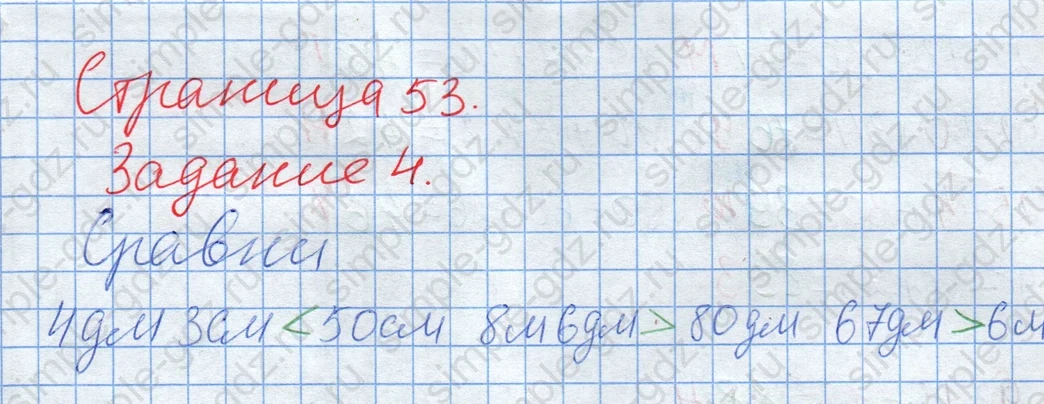 Страница 53.
Задание 4.
Сравни
4дм 3см < 50см 8м 6дм > 80дм 67дм > 6м